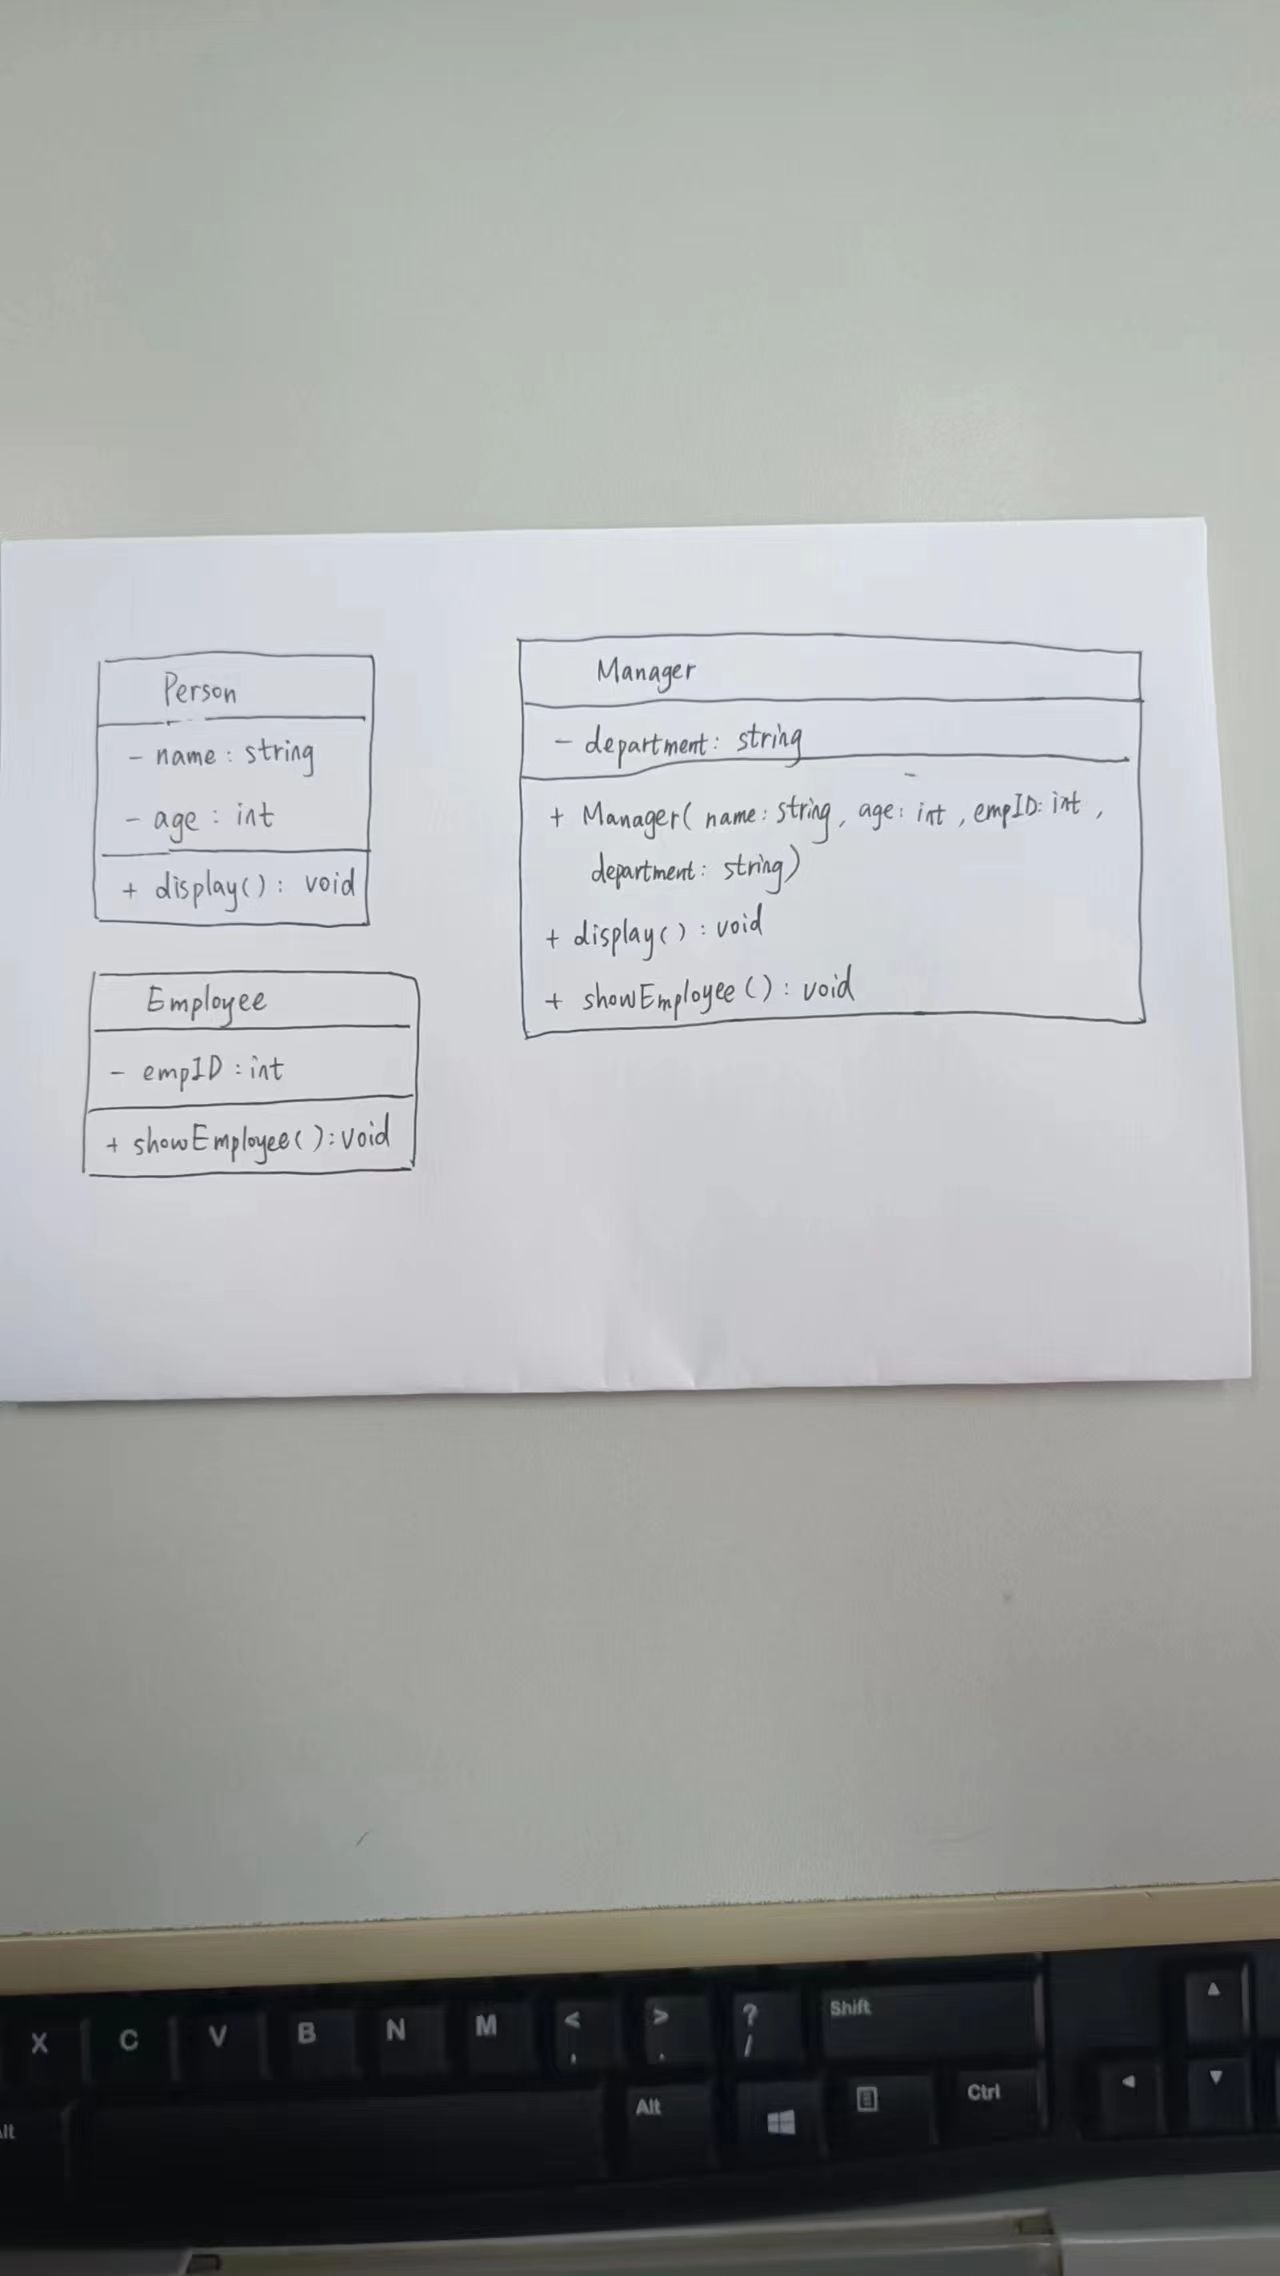 Person
- name : string
- age : int
+ display() : void
Employee
- empID : int
+ showEmployee() : void
Manager
- department : string
+ Manager( name : string, age : int, empID : int,
department : string)
+ display() : void
+ showEmployee() : void
X C V B N M < , > . ? / Shift
Alt Ctrl